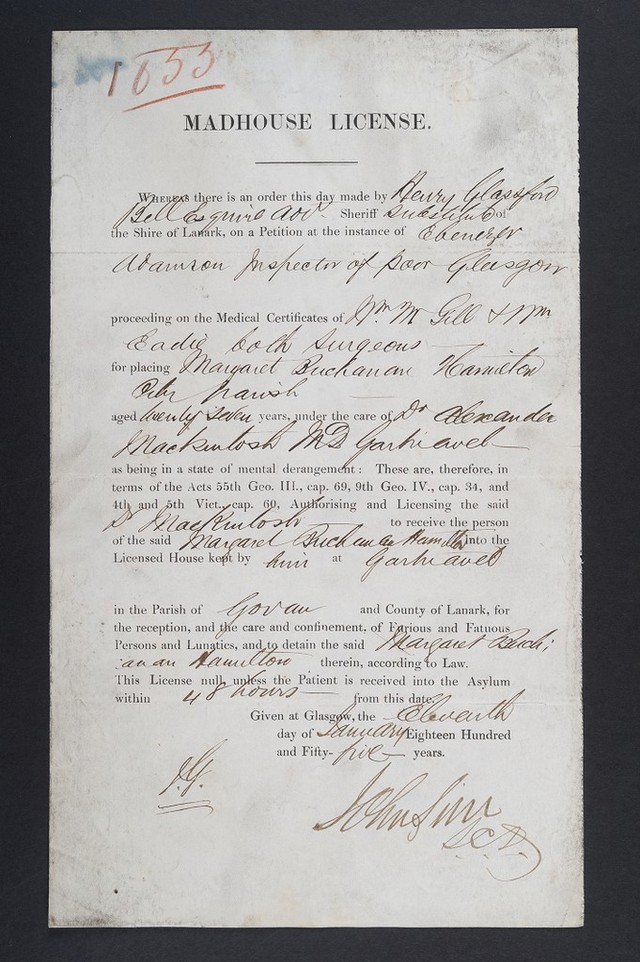 1633
MADHOUSE LICENSE.
WHEREAS there is an order this day made by Henry Glassford
Bell Esquire Adv. Sheriff Substitute of
the Shire of Lanark, on a Petition at the instance of Ebenezer
Adamson Inspector of Poor Glasgow
proceeding on the Medical Certificates of Wm. McGill & Wm.
Eadie both surgeons
for placing Margaret Buchanan Hamilton
City parish
aged twenty seven years, under the care of Dr Alexander
Mackintosh MD Gartnavel
as being in a state of mental derangement: These are, therefore, in
terms of the Acts 55th Geo. III., cap. 69, 9th Geo. IV., cap. 34, and
4th and 5th Vict., cap. 60, Authorising and Licensing the said
Dr Mackintosh to receive the person
of the said Margaret Buchanan Hamilton into the
Licensed House kept by him at Gartnavel
in the Parish of Govan and County of Lanark, for
the reception, and the care and confinement, of Furious and Fatuous
Persons and Lunatics, and to detain the said Margaret Buch:
:anan Hamilton therein, according to Law.
This License null, unless the Patient is received into the Asylum
within 48 hours from this date.
Given at Glasgow, the Eleventh
day of January Eighteen Hundred
and Fifty-five years.
John